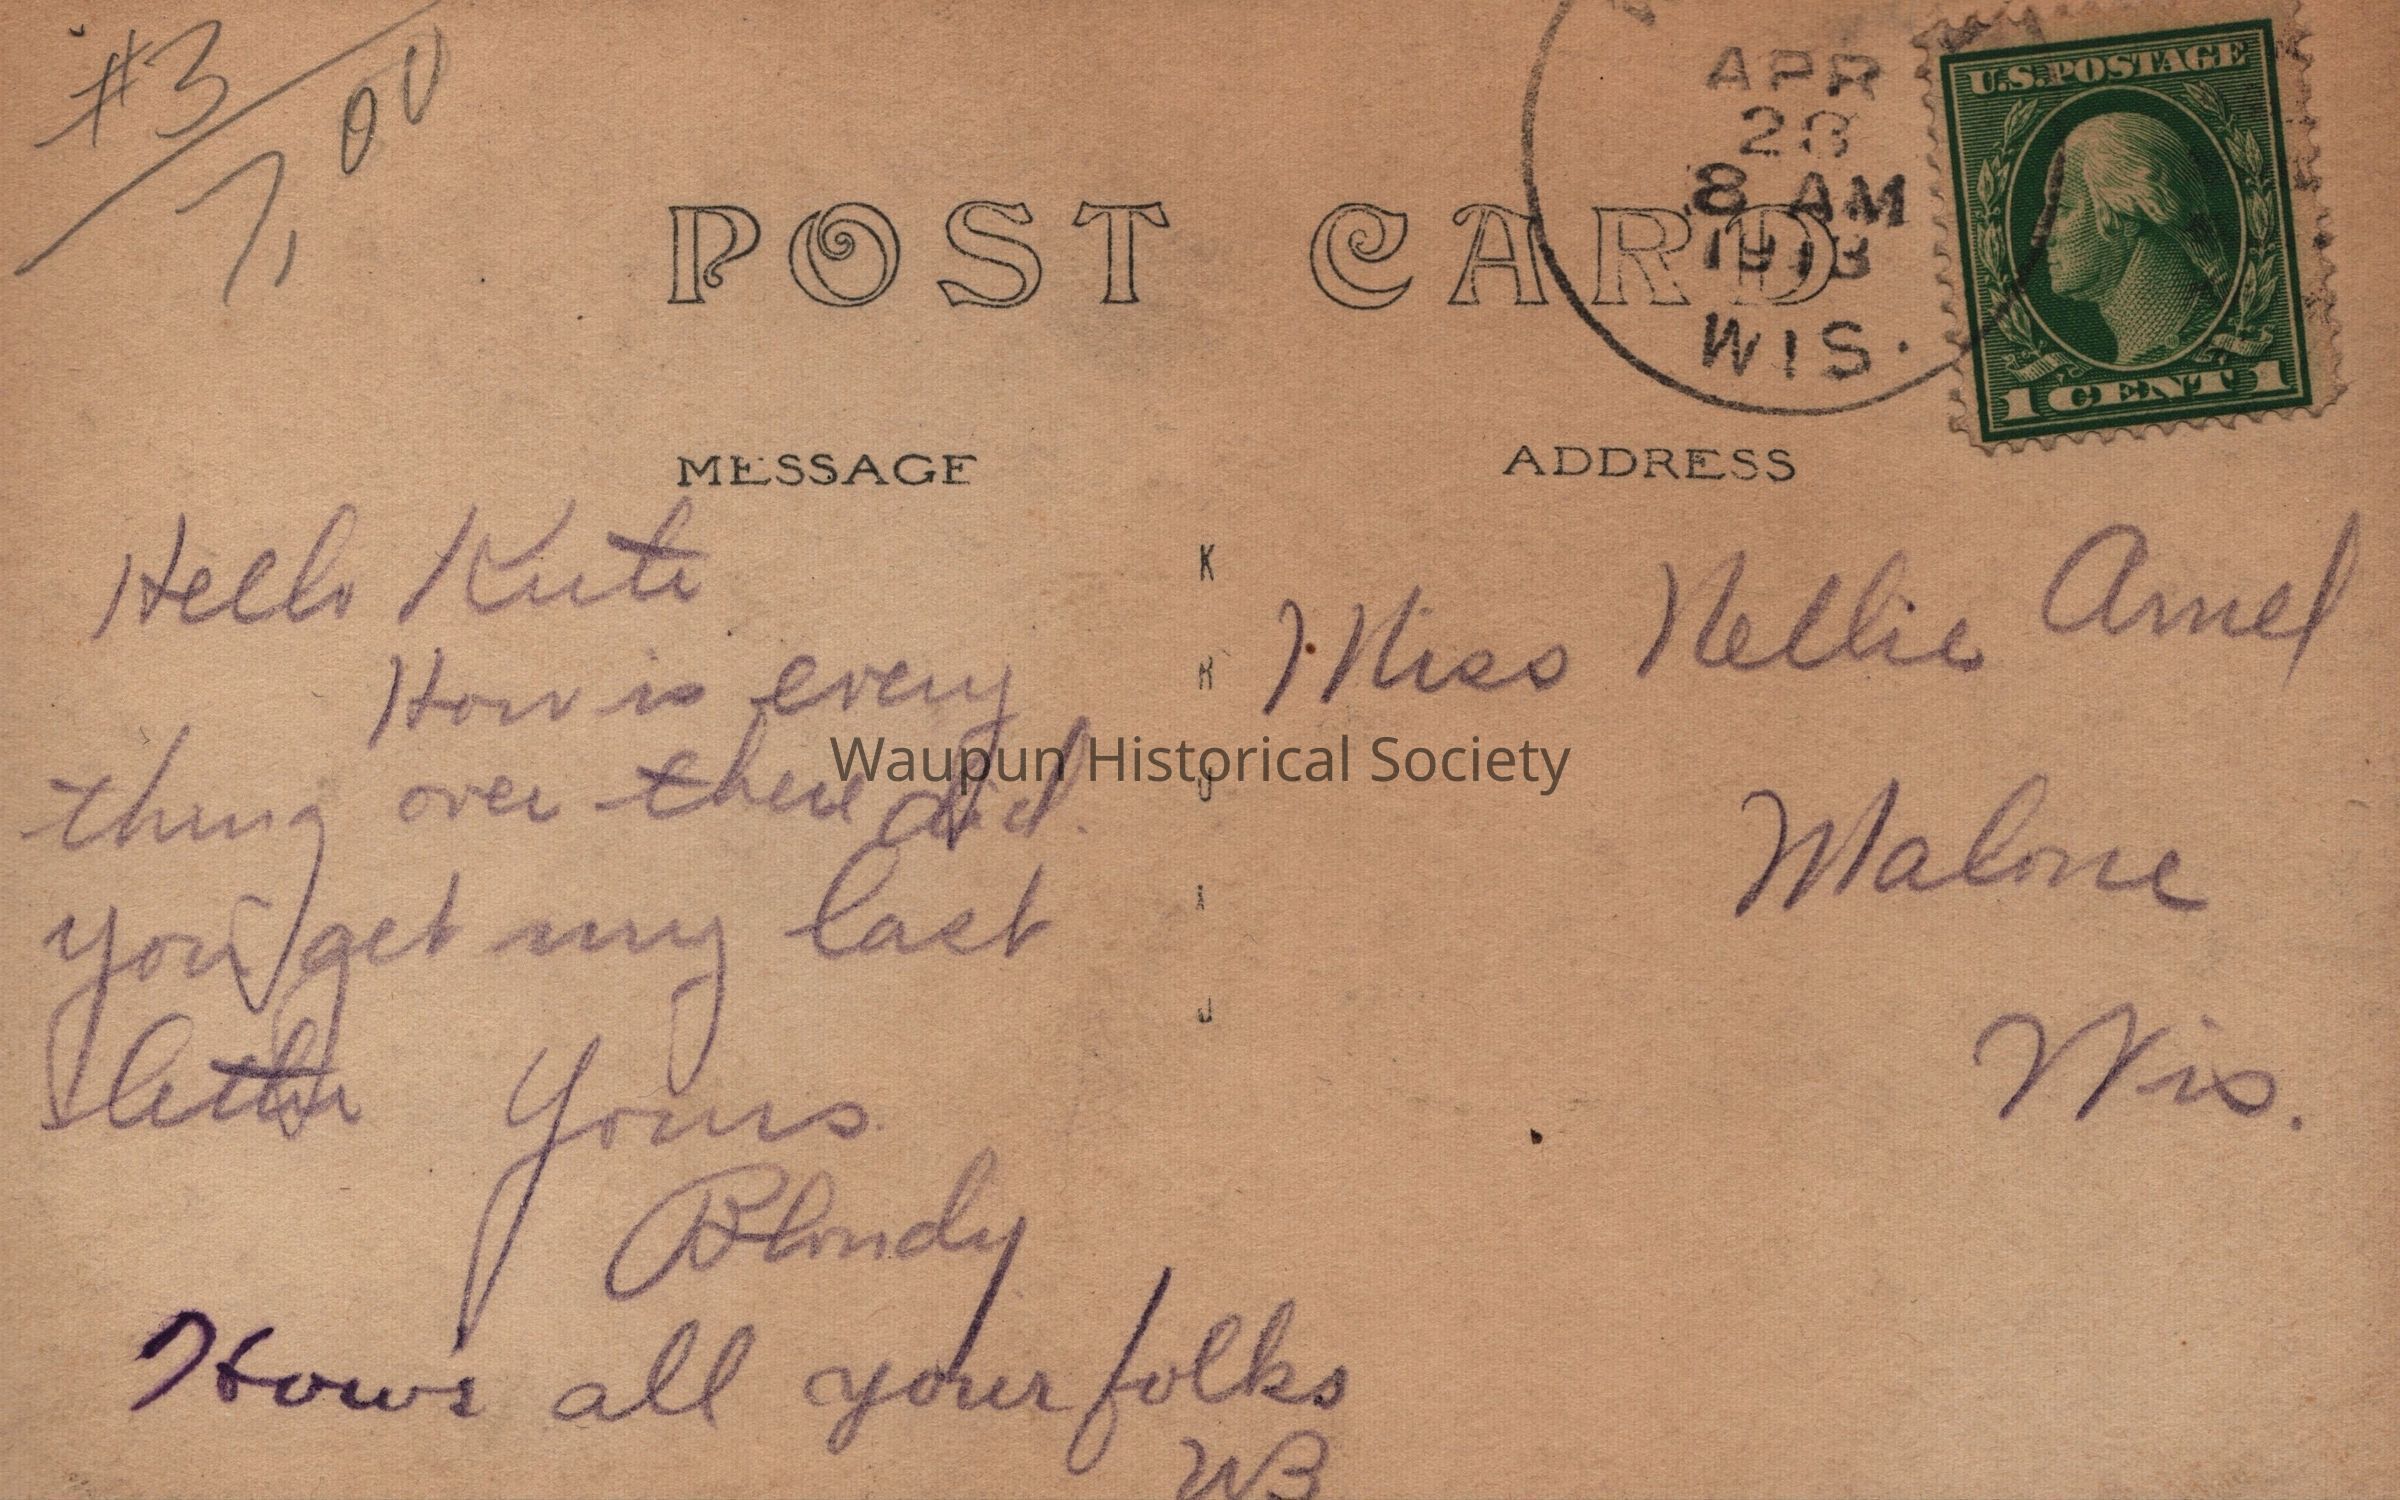 #3
7,00
POST CARD
APR
28
8 AM
1913
WIS.
U.S. POSTAGE
1 CENT 1
MESSAGE
ADDRESS
Hello Kute
How is every
thing over there did
you get my last
letter Yours.
Blondy
Hows all your folks
WB
K
R
U
X
J
Miss Nellie Amel
Malone
Wis.
Waupun Historical Society